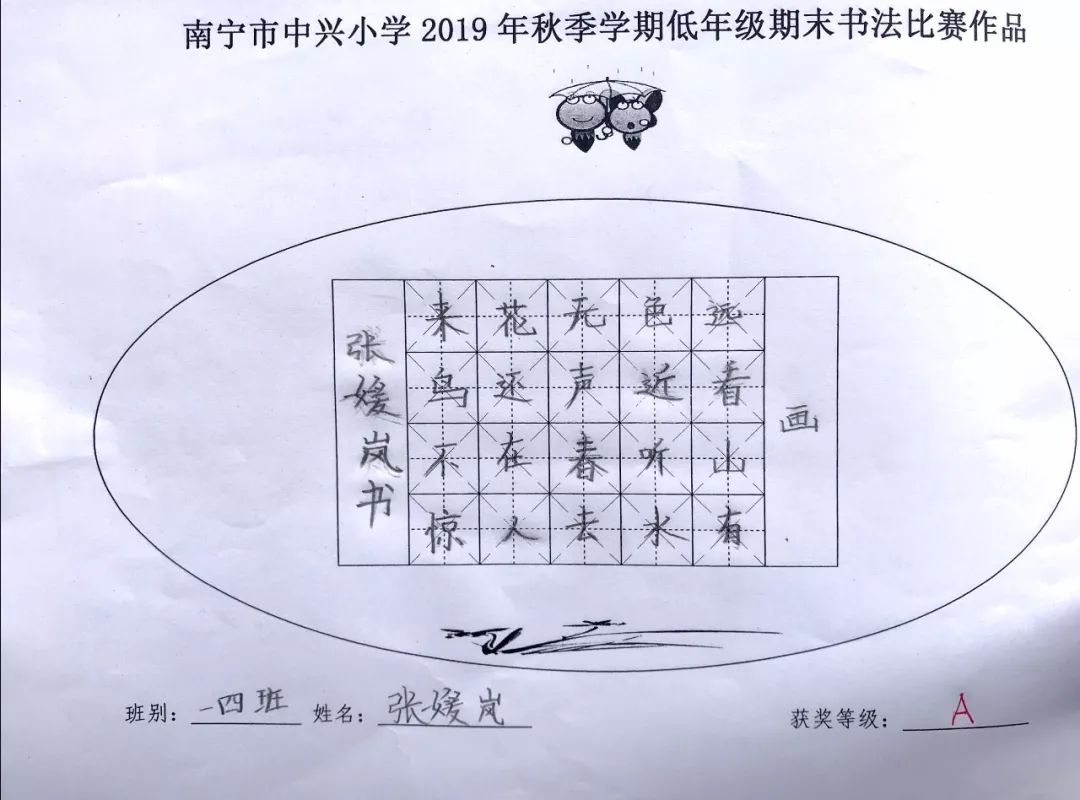 南宁市中兴小学 2019 年秋季学期低年级期末书法比赛作品
画
远看山有
色近听水
无声春去
花还在人
来鸟不惊
张媛岚书
班别：一四班 姓名：张媛岚 获奖等级：A